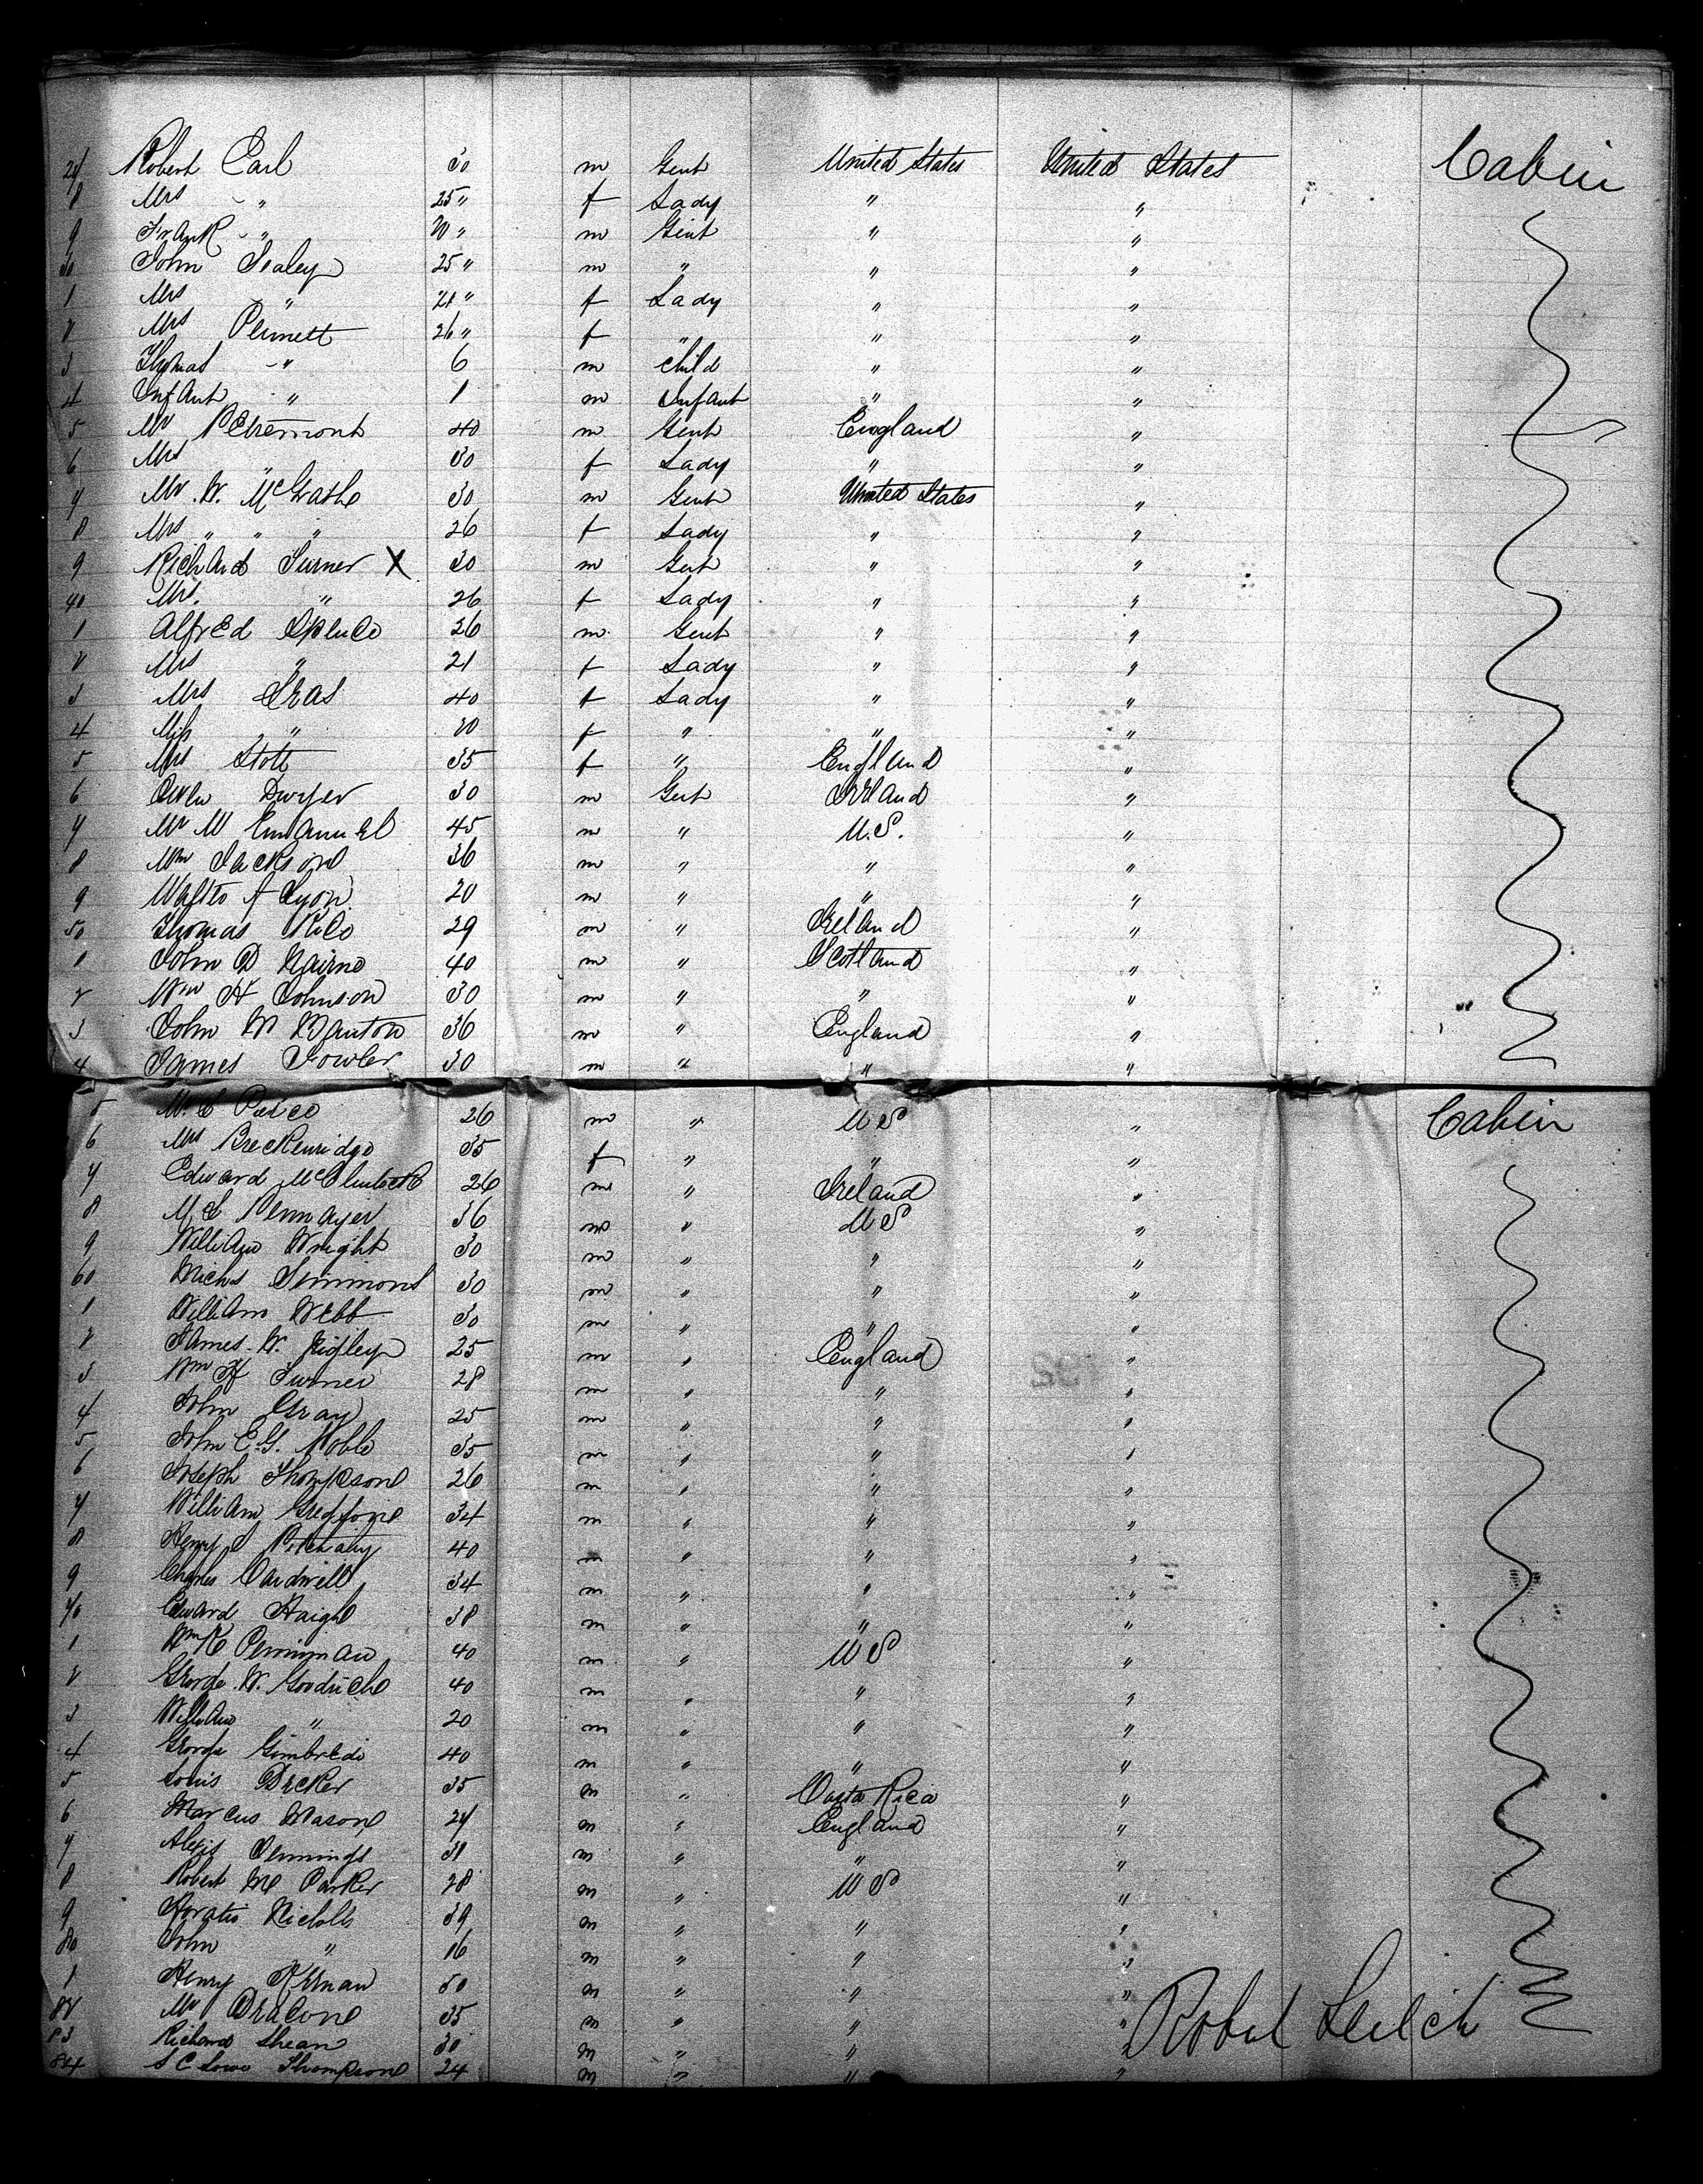 27 Robert Earl 30 m Gent United States United States Cabin
8 Mrs " 25 " f Lady " "
9 Frank " 20 " m Gent " "
30 John Sealey 25 " m " " "
1 Mrs " 21 " f Lady " "
2 Mrs 26 " f " " "
3 Thomas " 6 m Child " "
4 Infant " 1 m Infant " "
5 Mr 40 m Gent England "
6 Mrs " 30 f Lady " "
7 Mr W. McGrath 30 m Gent United States "
8 Mrs " " " 26 f Lady " "
9 Richard Turner X 30 m Gent " "
40 Mrs. " 26 f Lady " "
1 Alfred 26 m Gent " "
2 Mrs " 21 f Lady " "
3 Mrs 40 f Lady " "
4 Miss " 20 f " " "
5 Mrs Stott 35 f " England "
6 Owen Dwyer 30 m Gent Ireland "
7 Mr M Emanuel 45 m " U.S. "
8 Wm Jackson 36 m " " "
9 Lyon 20 m " " "
50 Thomas 29 m " Ireland "
1 John D Nairne 40 m " Scotland "
2 Wm H Johnson 30 m " " "
3 John 36 m " England "
4 James Fowler 30 m " " "
5 26 m " U S " Cabin
6 Mrs Breckenridge 35 f " " "
7 Edward 26 m " Ireland "
8 36 m " U S "
9 William Wright 30 m " " "
60 Simmons 30 m " " "
1 William Webb 30 m " " "
2 James W. 25 m " England "
3 Wm H Turner 28 m " " "
4 John Gray 25 m " " "
5 John Noble 35 m " " "
6 Joseph Thompson 26 m " " "
7 William 34 m " " "
8 Henry 40 m " " "
9 Charles Cardwell 34 m " " "
70 Edward Haigh 38 m " " "
1 Wm 40 m " U S "
2 George W. Goodrich 40 m " " "
3 William " 20 m " " "
4 George 40 m " " "
5 Louis Decker 35 m " Costa Rica "
6 Marcus Mason 27 m " England "
7 Jennings 31 m " " "
8 Robert Parker 28 m " U S "
9 Horatio Nicholls 39 m " " "
80 John " 16 m " " "
1 Henry 50 m " " "
82 Mr 35 m " " "
83 Richard Shean 30 m " " "
84 S C Thompson 24 m " " "
Robt Leitch